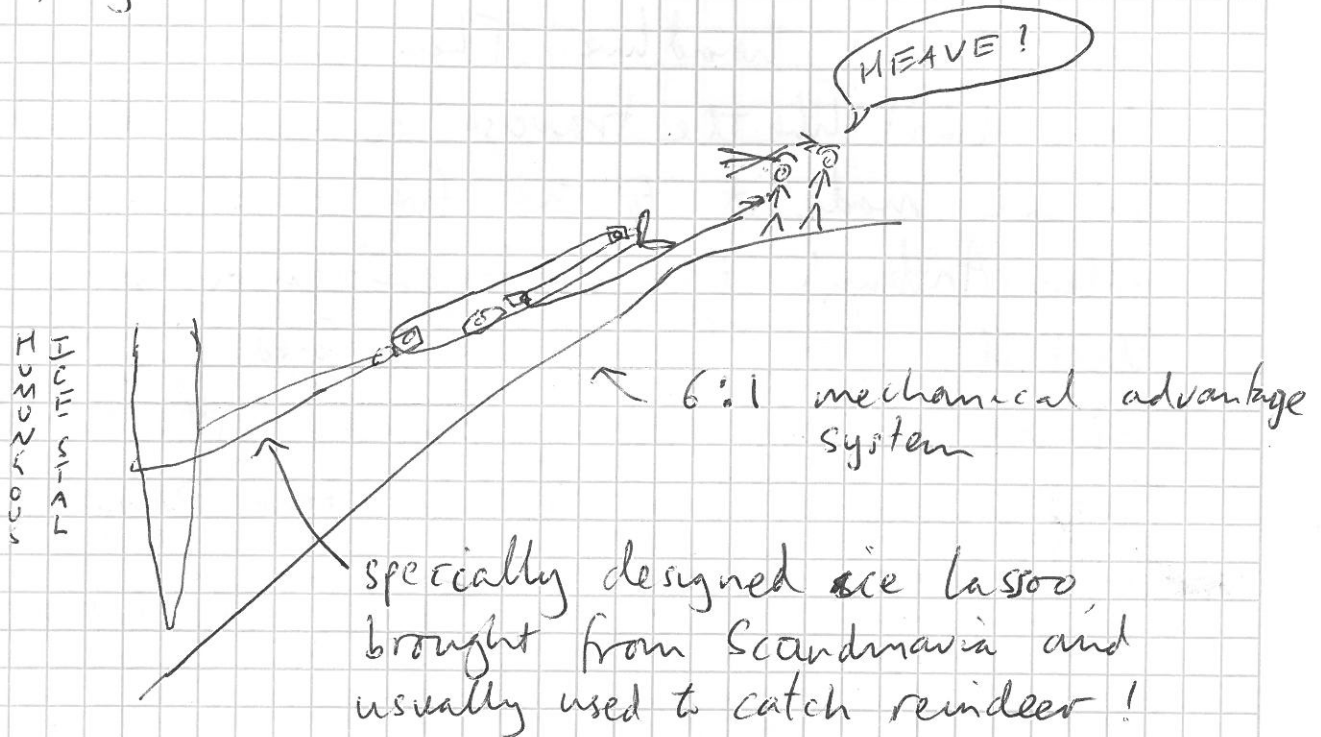 HEAVE!
HUMUNGOUS
ICE STAL
6:1 mechanical advantage
system
specially designed ice lassoo
brought from Scandinavia and
usually used to catch reindeer!